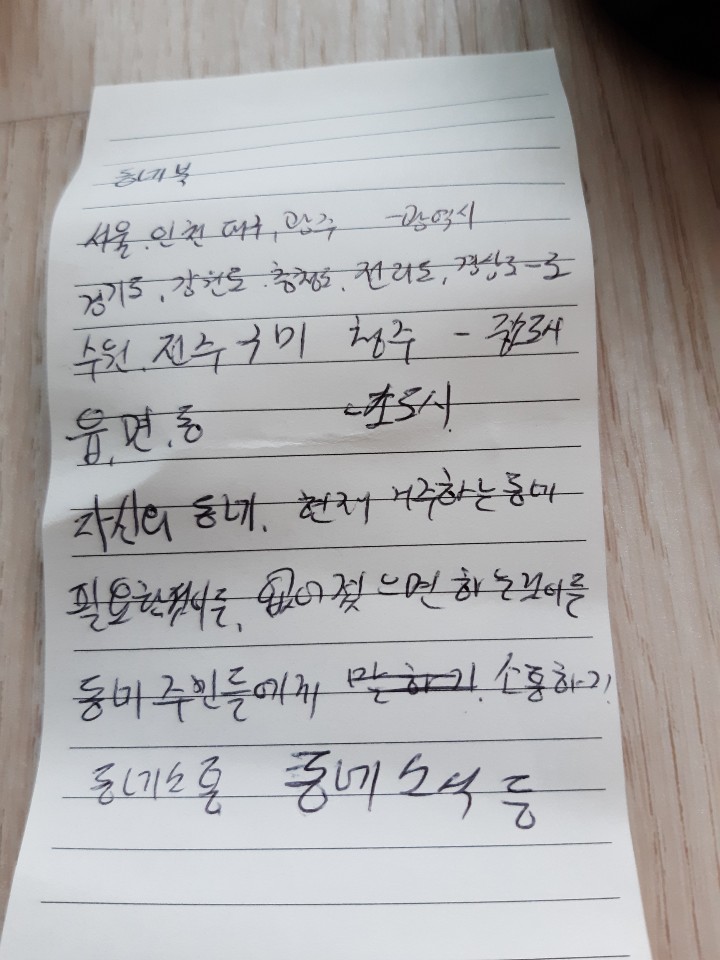 동네북
서울.인천 대구, 광주 -광역시
경기도, 강원도.충청도, 전라도, 경상도-도
수원.전주 구미 청주 -
읍.면.동
자신의 동네. 현재 거주하는 동네
필요한점이를, 없어졌으면 하는점이를
동네 주민들에게 말하기. 소통하기
동네소통 동네소식 등